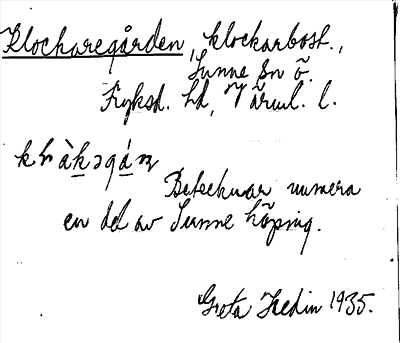 Klockaregården, klockarbost.,
Sunne sn ö.
Fryksd. hd, Värml. l.
Betecknar numera
en del av Sunne köping.
Greta Hedin 1935.